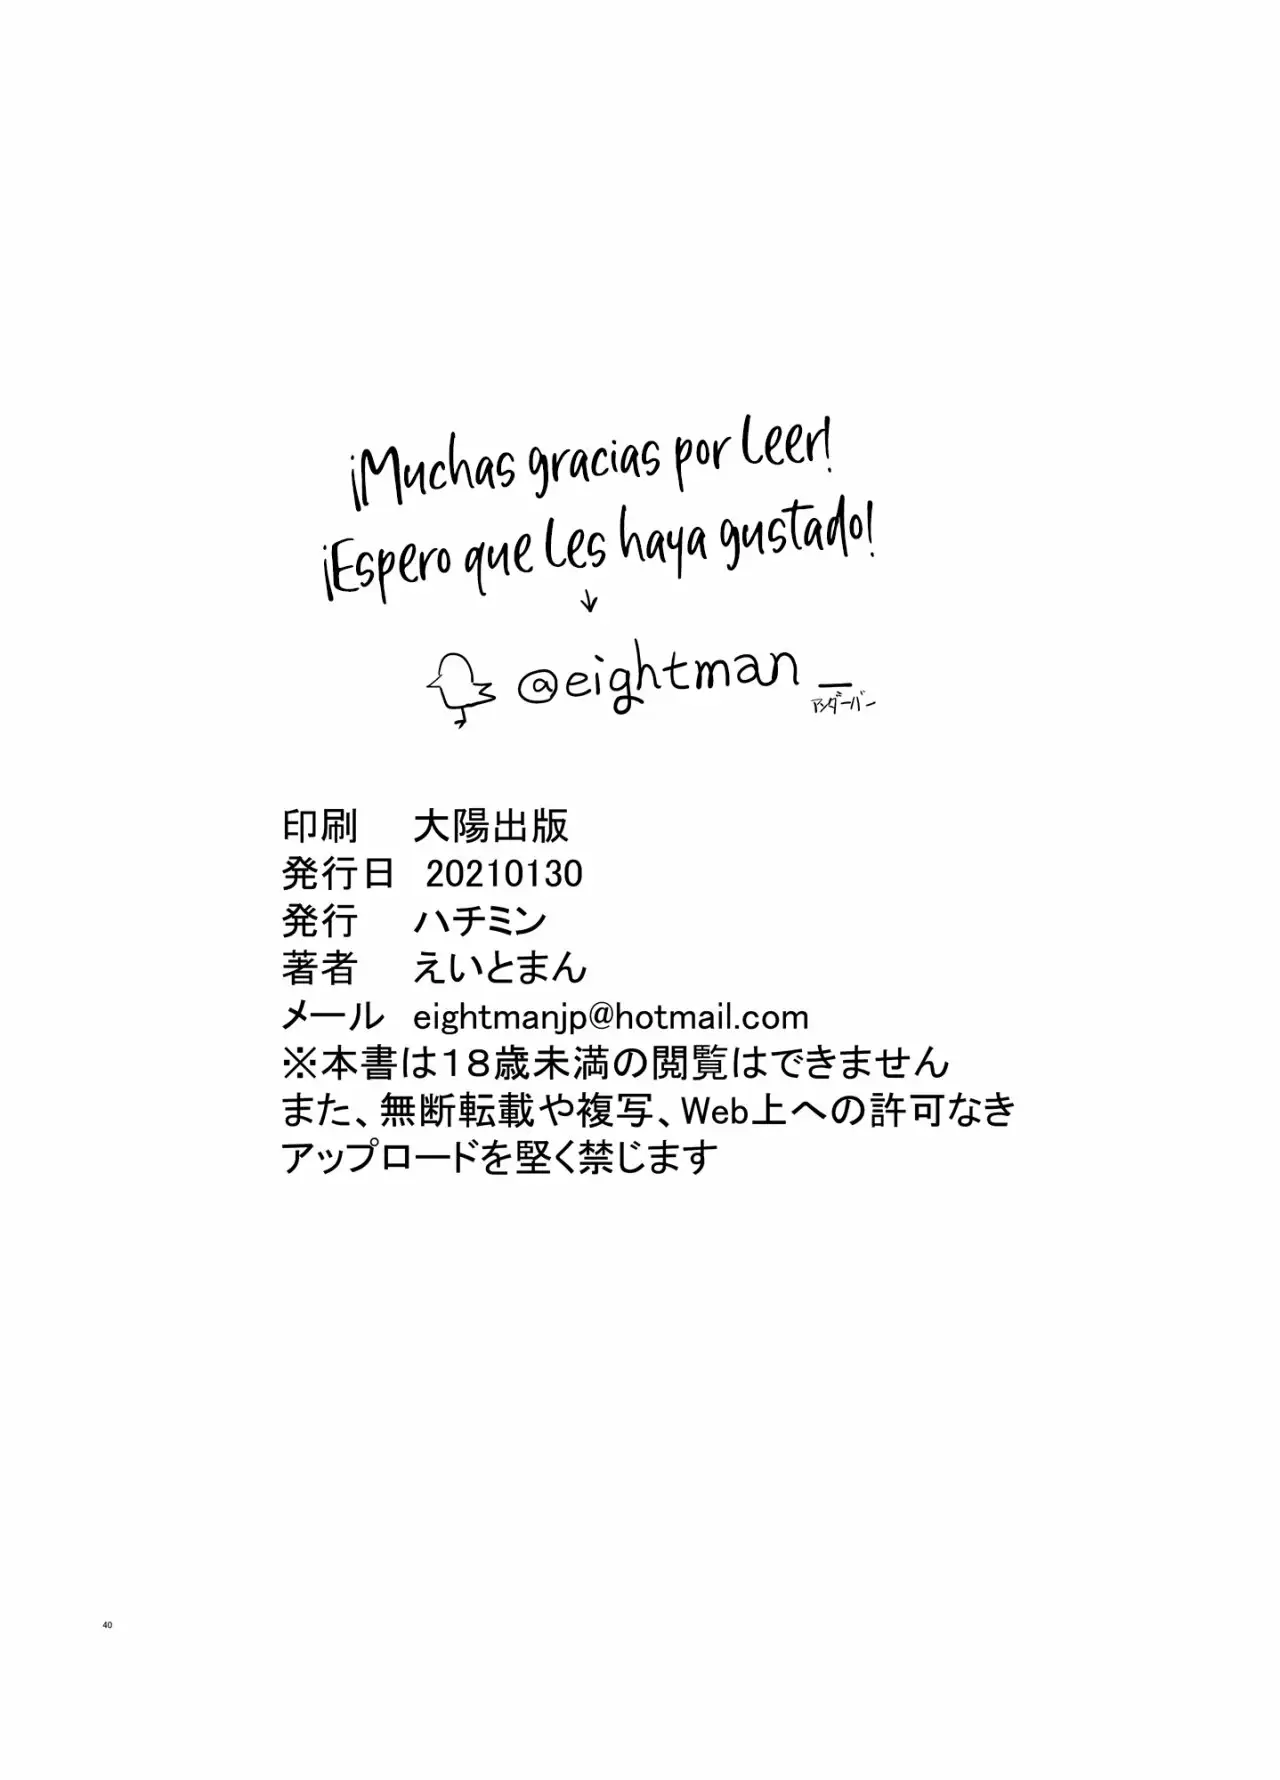 ¡Muchas gracias por leer!
¡Espero que les haya gustado!
↓
@eightman_
アンダーバー
印刷　大陽出版
発行日　20210130
発行　ハチミン
著者　えいとまん
メール　eightmanjp@hotmail.com
※本書は１８歳未満の閲覧はできません
また、無断転載や複写、Web上への許可なき
アップロードを堅く禁じます
40